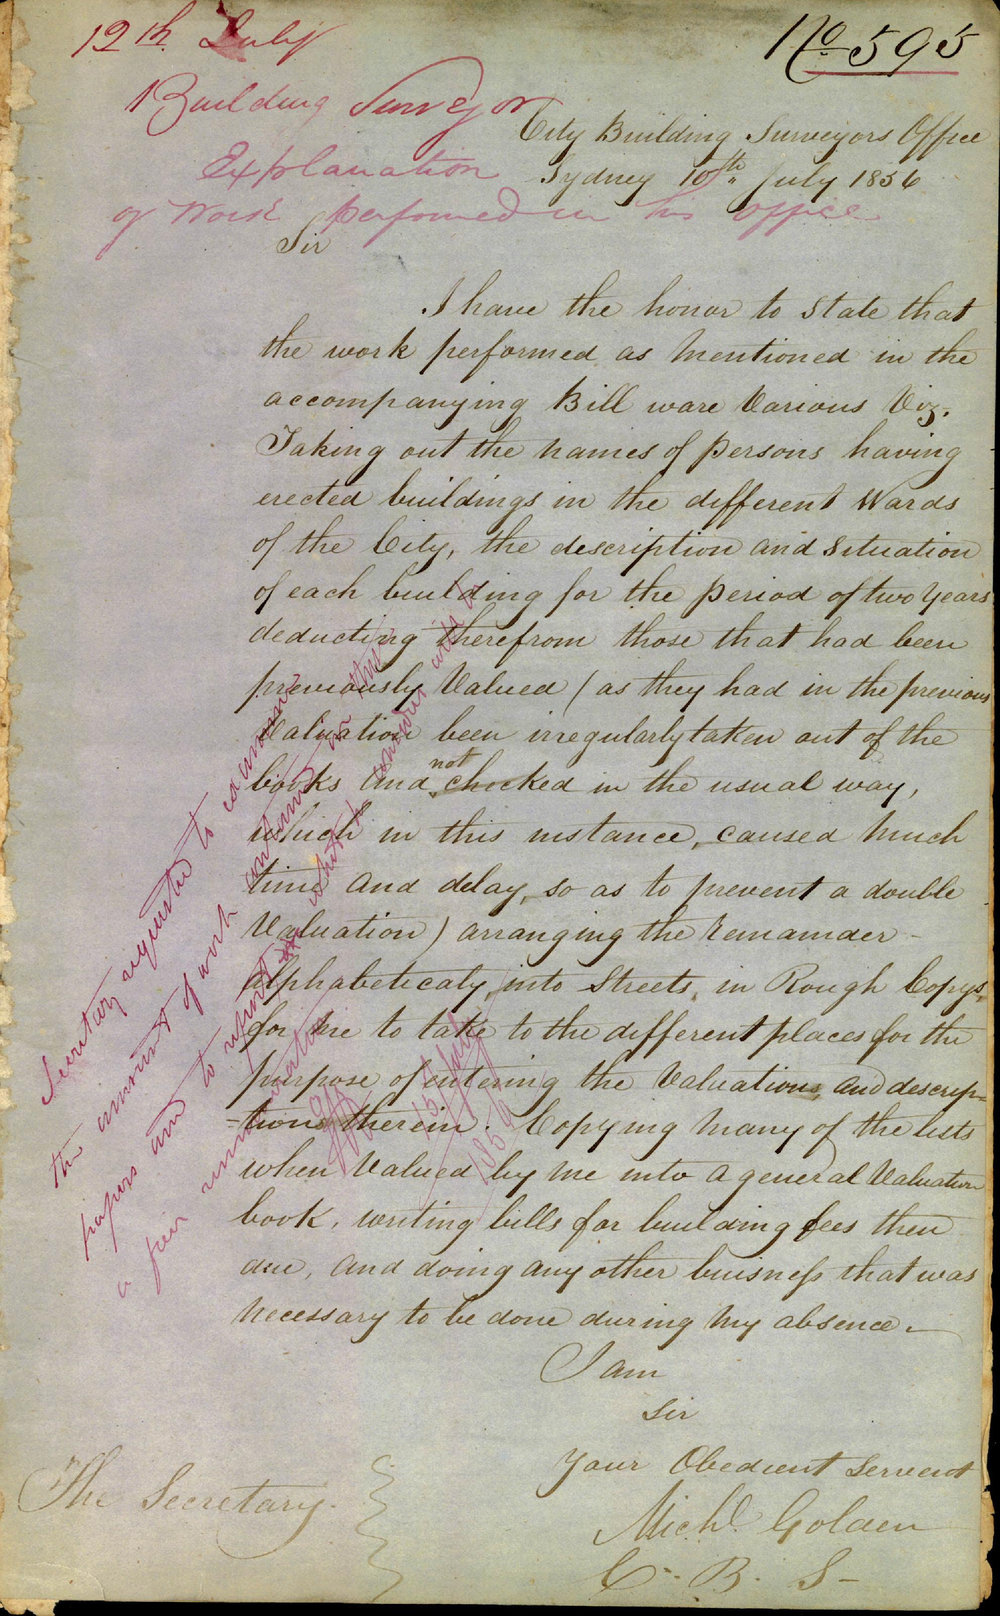 12th July
No 595
Building Surveyor
City Building Surveyors Office
Explanation
Sydney 10th July 1856
of Work performed in his office
Sir
I have the honor to State that
the work performed as mentioned in the
accompanying Bill ware Various Viz.
Taking out the names of persons having
erected buildings in the different Wards
of the City, the description and Situation
of each building for the period of two years
deducting therefrom those that had been
previously Valued (as they had in the previous
Valuation been irregularly taken out of the
books and not checked in the usual way,
which in this instance, caused much
time and delay, so as to prevent a double
Valuation) arranging the remainder
Alphabeticaly, into Streets, in Rough Copys,
for me to take to the different places for the
purpose of entering the Valuations, and descrip-
=tions therein. Copying many of the lists
when Valued by me into a general Valuation
book, writing bills for building fees then
due, and doing any other buisness that was
necessary to be done during my absence.
I am
Sir
Your Obedient Servent
Michl. Golden
C. B. S
The Secretary.
Secretary requested to examine
the amount of work contained in the
papers and to report whether
a fair remuneration
15 July
1856